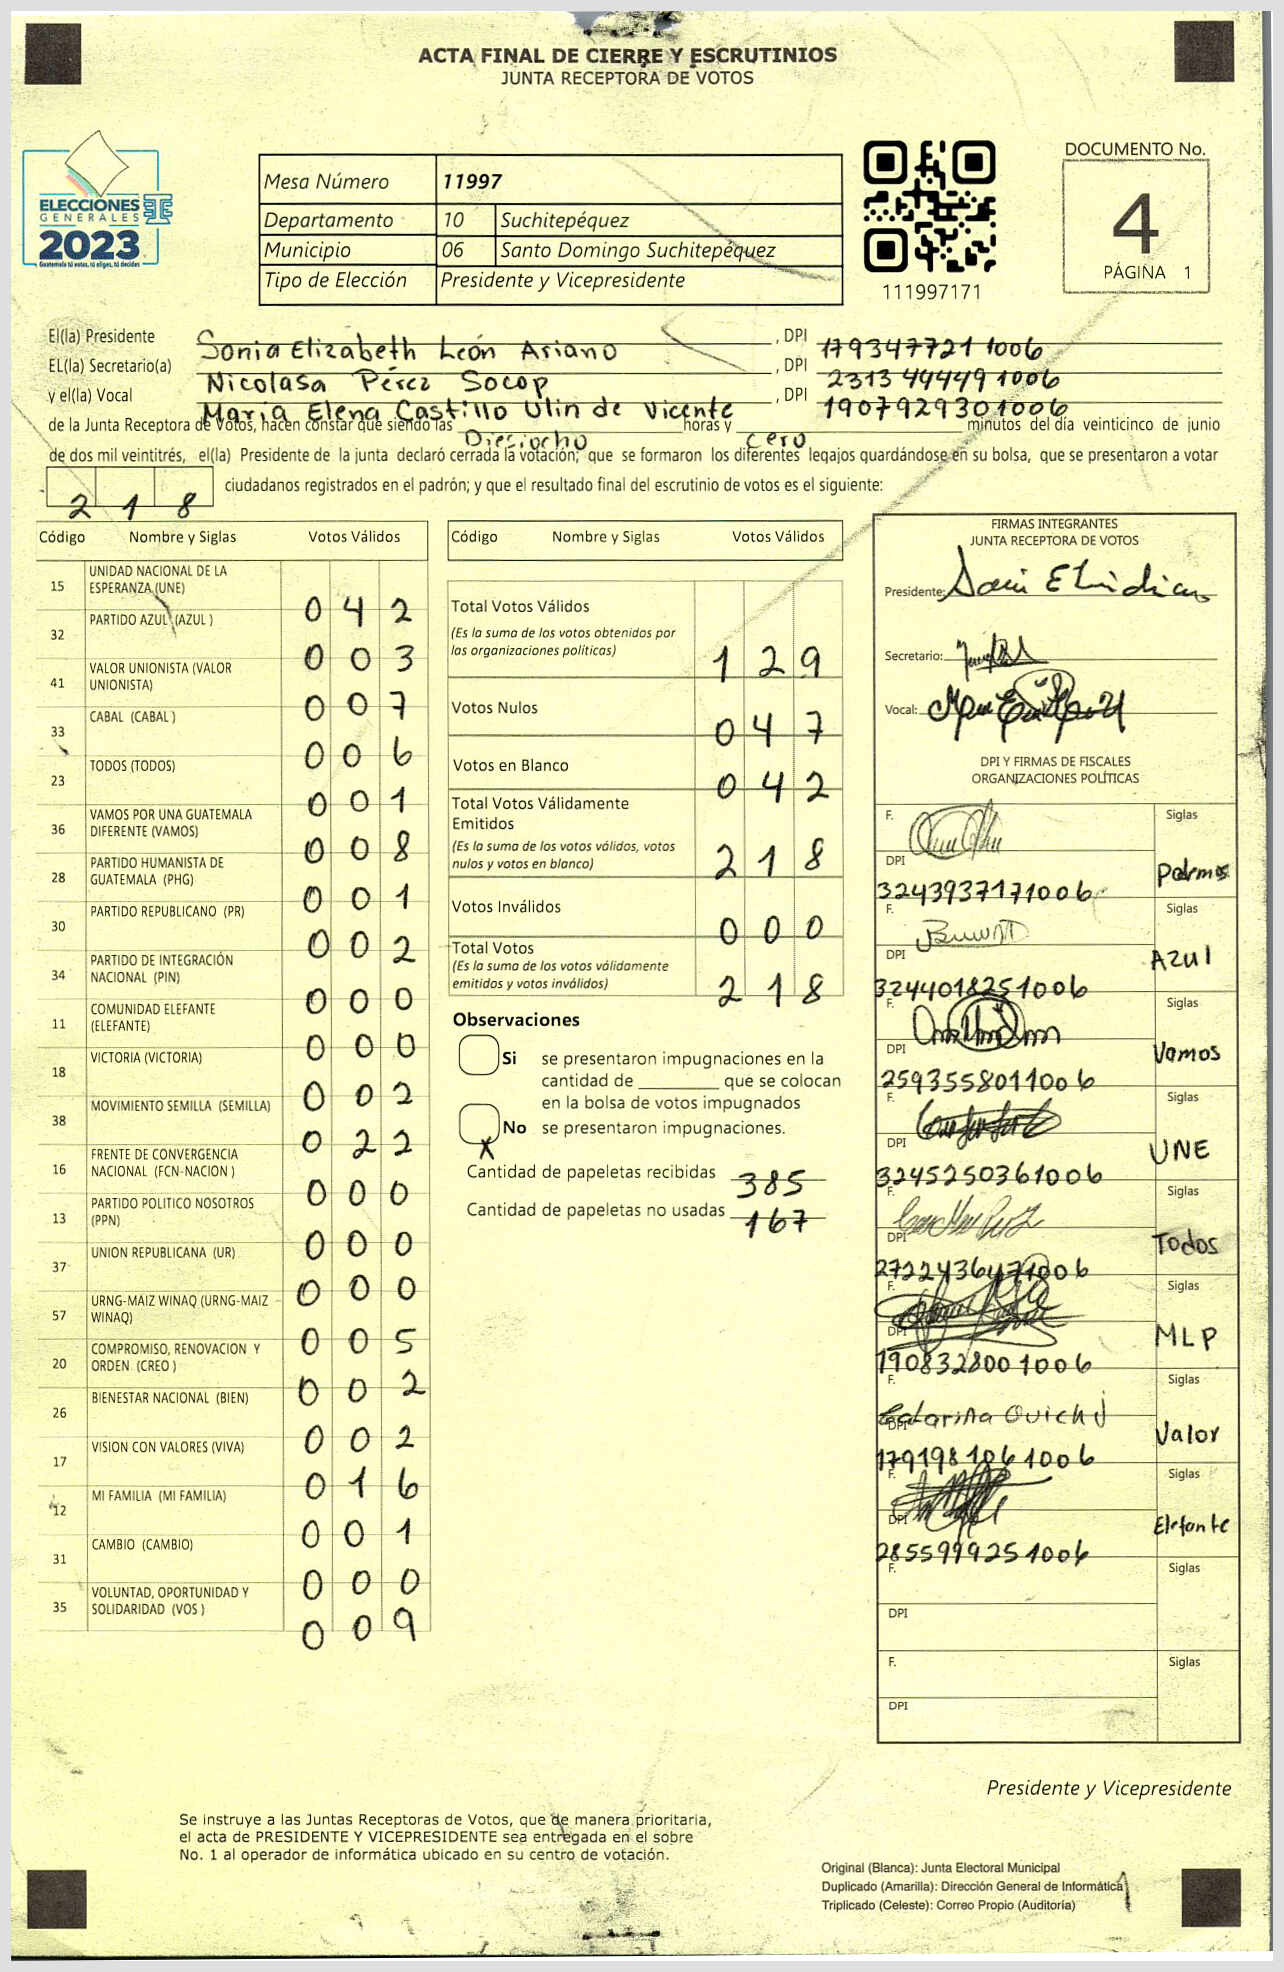 ACTA FINAL DE CIERRE Y ESCRUTINIOS
JUNTA RECEPTORA DE VOTOS
ELECCIONES
GENERALES
2023
Guatemala tú votas, tú eliges, tú decides
Mesa Número 11997
Departamento 10 Suchitepéquez
Municipio 06 Santo Domingo Suchitepéquez
Tipo de Elección Presidente y Vicepresidente
111997171
DOCUMENTO No.
4
PÁGINA 1
El(la) Presidente Sonia Elizabeth León Ariano , DPI 179347721 1006
EL(la) Secretario(a) Nicolasa Pérez Socop , DPI 2313 44449 1006
y el(la) Vocal María Elena Castillo Ulin de Vicente , DPI 1907929301006
de la Junta Receptora de Votos, hacen constar que siendo las Dieciocho horas y cero minutos del día veinticinco de junio
de dos mil veintitrés, el(la) Presidente de la junta declaró cerrada la votación; que se formaron los diferentes legajos guardándose en su bolsa, que se presentaron a votar
218 ciudadanos registrados en el padrón; y que el resultado final del escrutinio de votos es el siguiente:
Código Nombre y Siglas Votos Válidos
15 UNIDAD NACIONAL DE LA ESPERANZA (UNE) 042
32 PARTIDO AZUL (AZUL ) 003
41 VALOR UNIONISTA (VALOR UNIONISTA) 007
33 CABAL (CABAL ) 006
23 TODOS (TODOS) 001
36 VAMOS POR UNA GUATEMALA DIFERENTE (VAMOS) 008
28 PARTIDO HUMANISTA DE GUATEMALA (PHG) 001
30 PARTIDO REPUBLICANO (PR) 002
34 PARTIDO DE INTEGRACIÓN NACIONAL (PIN) 000
11 COMUNIDAD ELEFANTE (ELEFANTE) 000
18 VICTORIA (VICTORIA) 002
38 MOVIMIENTO SEMILLA (SEMILLA) 022
16 FRENTE DE CONVERGENCIA NACIONAL (FCN-NACION ) 000
13 PARTIDO POLITICO NOSOTROS (PPN) 000
37 UNION REPUBLICANA (UR) 000
57 URNG-MAIZ WINAQ (URNG-MAIZ WINAQ) 005
20 COMPROMISO, RENOVACION Y ORDEN (CREO ) 002
26 BIENESTAR NACIONAL (BIEN) 002
17 VISION CON VALORES (VIVA) 016
12 MI FAMILIA (MI FAMILIA) 001
31 CAMBIO (CAMBIO) 000
35 VOLUNTAD, OPORTUNIDAD Y SOLIDARIDAD (VOS ) 009
Código Nombre y Siglas Votos Válidos
Total Votos Válidos
(Es la suma de los votos obtenidos por
las organizaciones políticas) 129
Votos Nulos 047
Votos en Blanco 042
Total Votos Válidamente
Emitidos
(Es la suma de los votos válidos, votos
nulos y votos en blanco) 218
Votos Inválidos 000
Total Votos
(Es la suma de los votos válidamente
emitidos y votos inválidos) 218
Observaciones
Si se presentaron impugnaciones en la
cantidad de ________ que se colocan
en la bolsa de votos impugnados
X No se presentaron impugnaciones.
Cantidad de papeletas recibidas 385
Cantidad de papeletas no usadas 167
FIRMAS INTEGRANTES
JUNTA RECEPTORA DE VOTOS
Presidente:
Secretario:
Vocal:
DPI Y FIRMAS DE FISCALES
ORGANIZACIONES POLÍTICAS
F. Siglas
DPI Podemos
3243937171006
F. Siglas
DPI Azul
3244018251006
F. Siglas
DPI Vamos
2593558011006
F. Siglas
DPI UNE
3245250361006
F. Siglas
DPI Todos
2722436471006
F. Siglas
DPI MLP
190832800 1006
F. Siglas
DPI Valor
1791981061006
F. Siglas
DPI Elefante
2855999251006
F. Siglas
DPI
F. Siglas
DPI
Presidente y Vicepresidente
Se instruye a las Juntas Receptoras de Votos, que de manera prioritaria,
el acta de PRESIDENTE Y VICEPRESIDENTE sea entregada en el sobre
No. 1 al operador de informática ubicado en su centro de votación.
Original (Blanca): Junta Electoral Municipal
Duplicado (Amarilla): Dirección General de Informática
Triplicado (Celeste): Correo Propio (Auditoría)